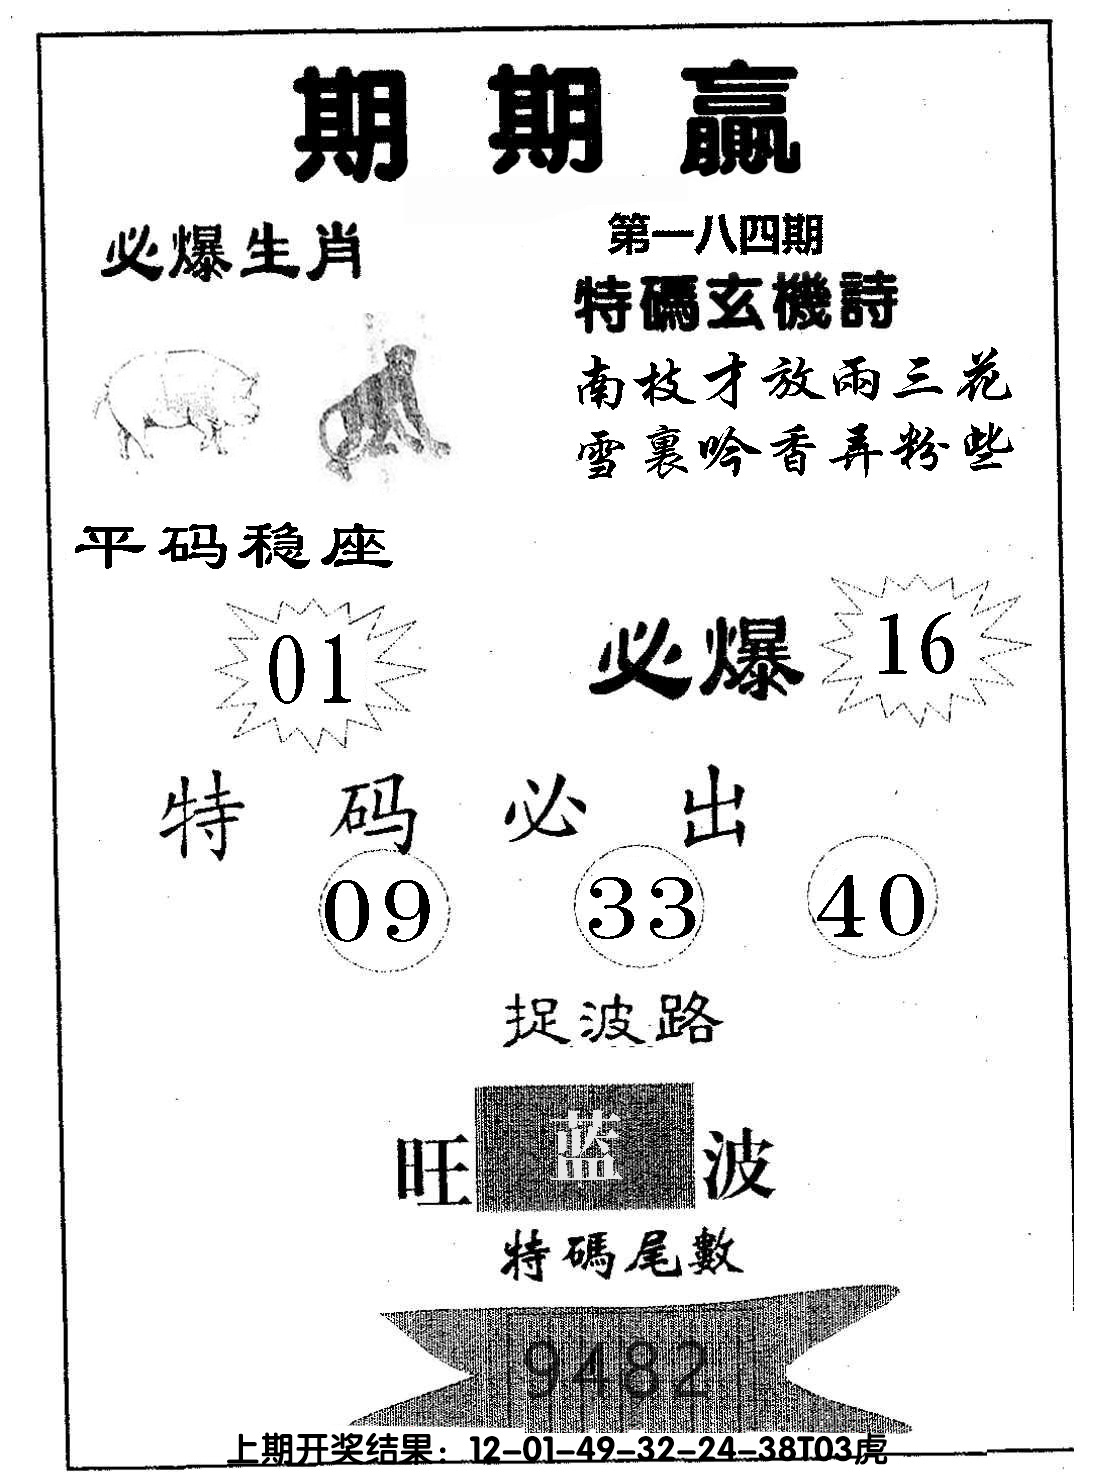 期期贏
必爆生肖
第一八四期
特碼玄機詩
南枝才放兩三花
雪裏吟香弄粉些
平码稳座
01
必爆 16
特码必出
09 33 40
捉波路
旺 蓝 波
特碼尾數
9482
上期开奖结果：12-01-49-32-24-38T03虎